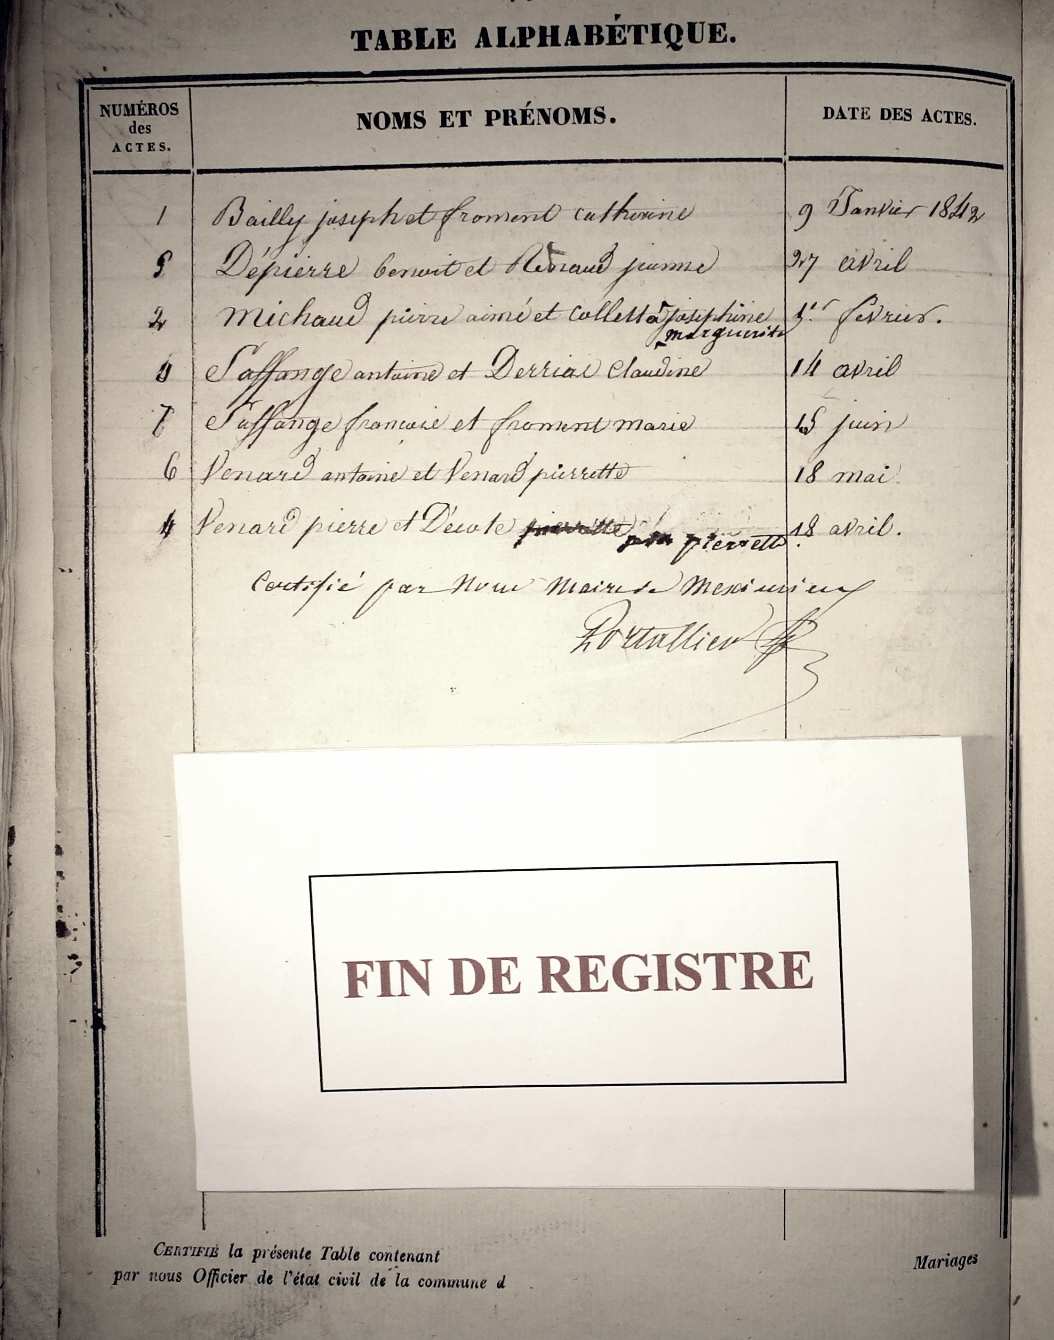 TABLE ALPHABÉTIQUE.
NUMÉROS des ACTES.
NOMS ET PRÉNOMS.
DATE DES ACTES.
1 Bailly joseph et froment catherine 9 Janvier 1842
5 Dépierre benoit et Renaud jeanne 27 avril
2 Michaud pierre aimé et Collet josephine 1er fevrier.
marguerite
Saffange antoine et Derriac Claudine 14 avril
7 Saffange françois et froment marie 15 juin
6 Venard antoine et Venard pierrette 18 mai
4 Venard pierre et Décote 18 avril.
pierrette
Certifié par Nous Maire de Meximieux
Portallier
FIN DE REGISTRE
CERTIFIÉ la présente Table contenant
Mariages
par nous Officier de l'état civil de la commune d